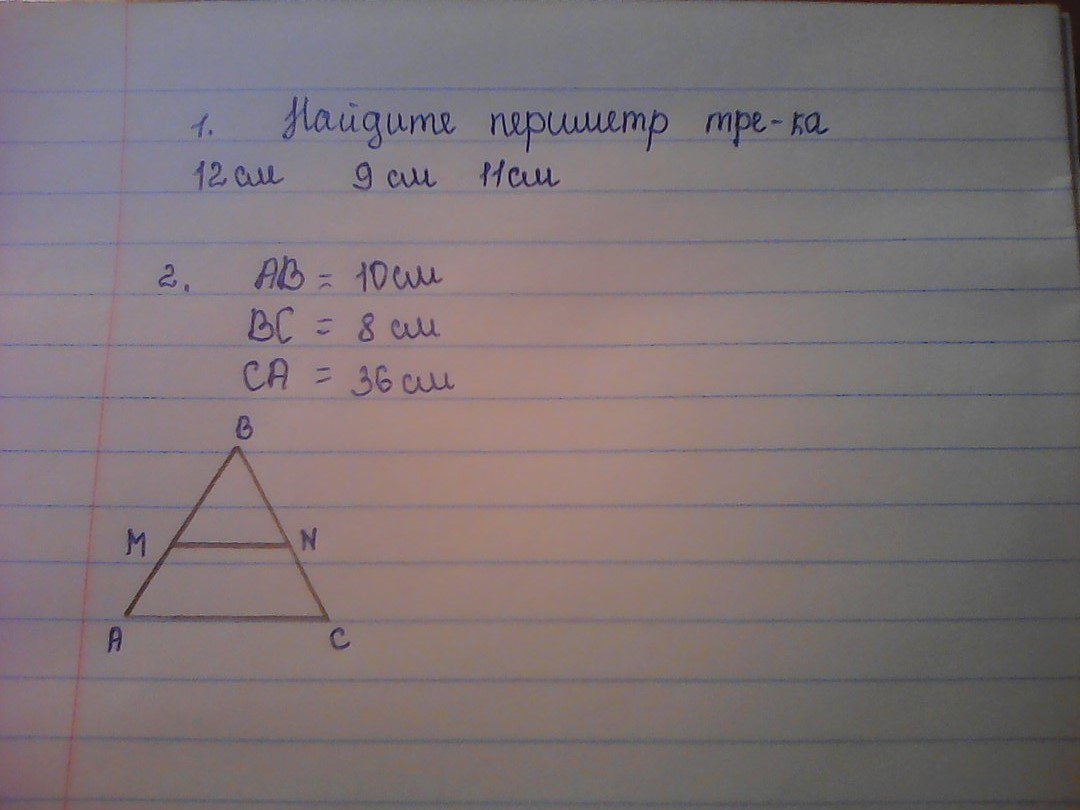 1. Найдите периметр тре-ка
12 см 9 см 11 см
2. AB = 10 см
BC = 8 см
CA = 36 см
B
M N
A C